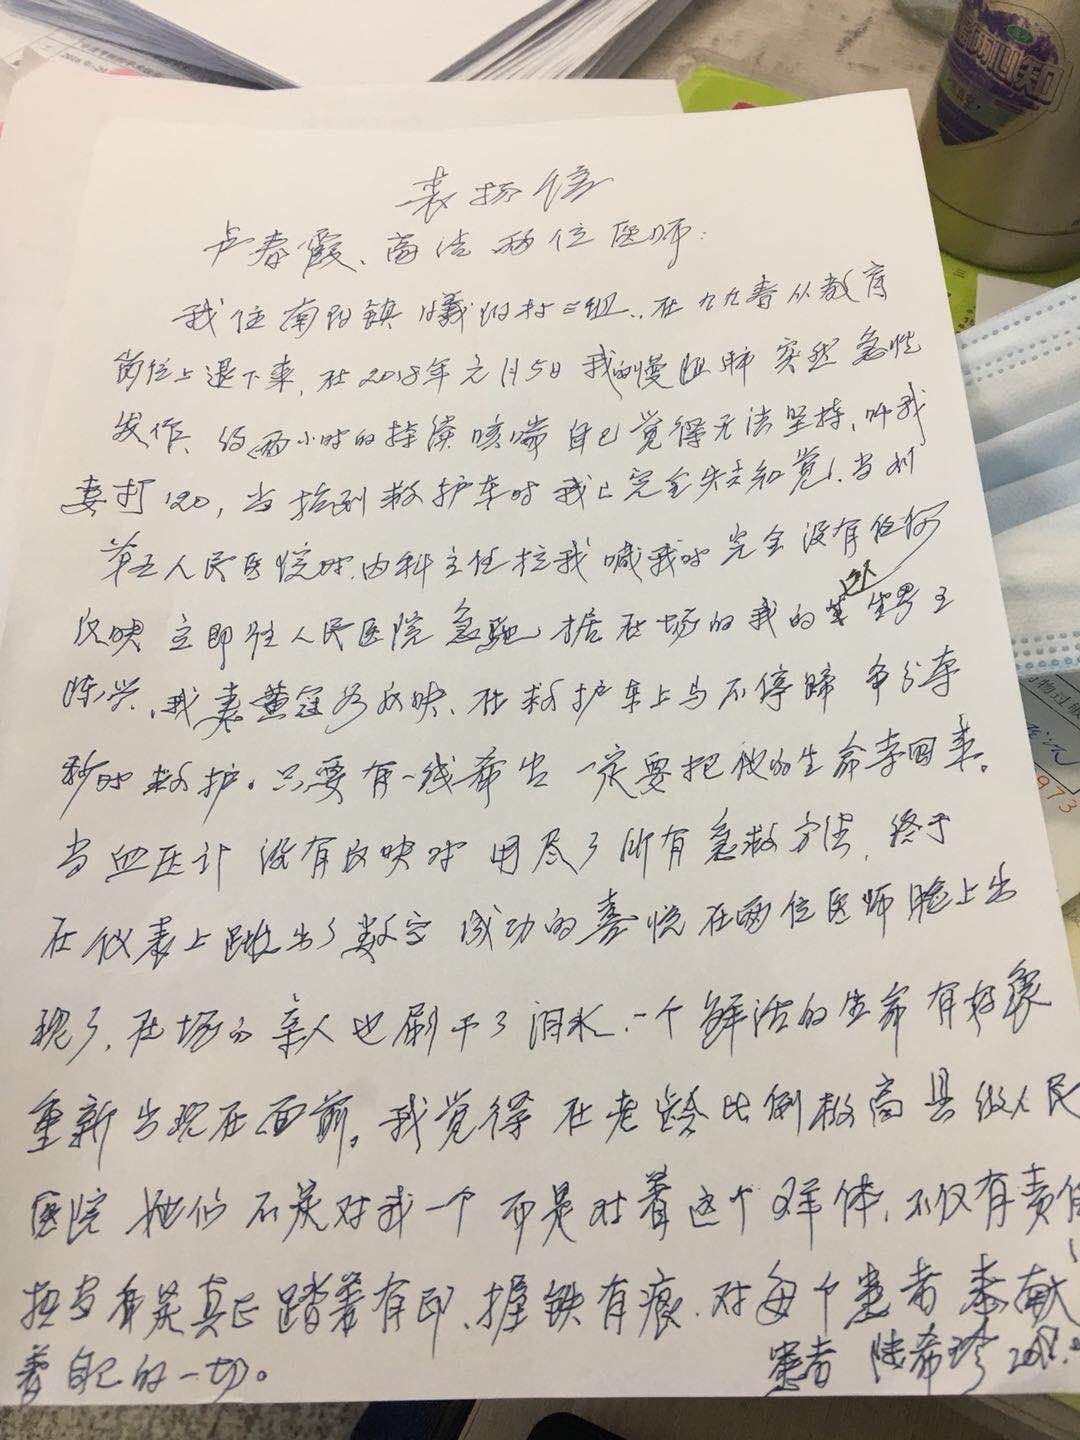 表扬信
卢春霞、高洁两位医师:
我住南阳镇 村三组,在九九春从教育
岗位上退下来,在2018年元月5日我的慢阻肺突然急性
发作、约两小时的持续咳喘自己觉得无法坚持,叫我
妻打120,当抬到救护车时我已完全失去知觉、当到
第五人民医院时,内科主任拉我喊我时完全没有任何
反映立即往人民医院急驰,据在场的我的 王
陈兴、我妻黄 反映、在救护车上马不停蹄争分夺
秒的救护。只要有一线希望一定要把他的生命夺回来。
当血压计没有反映时用尽了所有急救方法,终于
在仪表上跳出了数字成功的喜悦在两位医师脸上出
现了,在场的亲人也刷干了泪水、一个鲜活的生命有好象
重新出现在面前。我觉得在老龄比例极高县级人民
医院她们不是对我一个而是对着这个群体,不仅有责任
担当有是真正踏着有印、握铁有痕、对每个患者奉献
着自己的一切。
患者 陆希珍 2018.
973